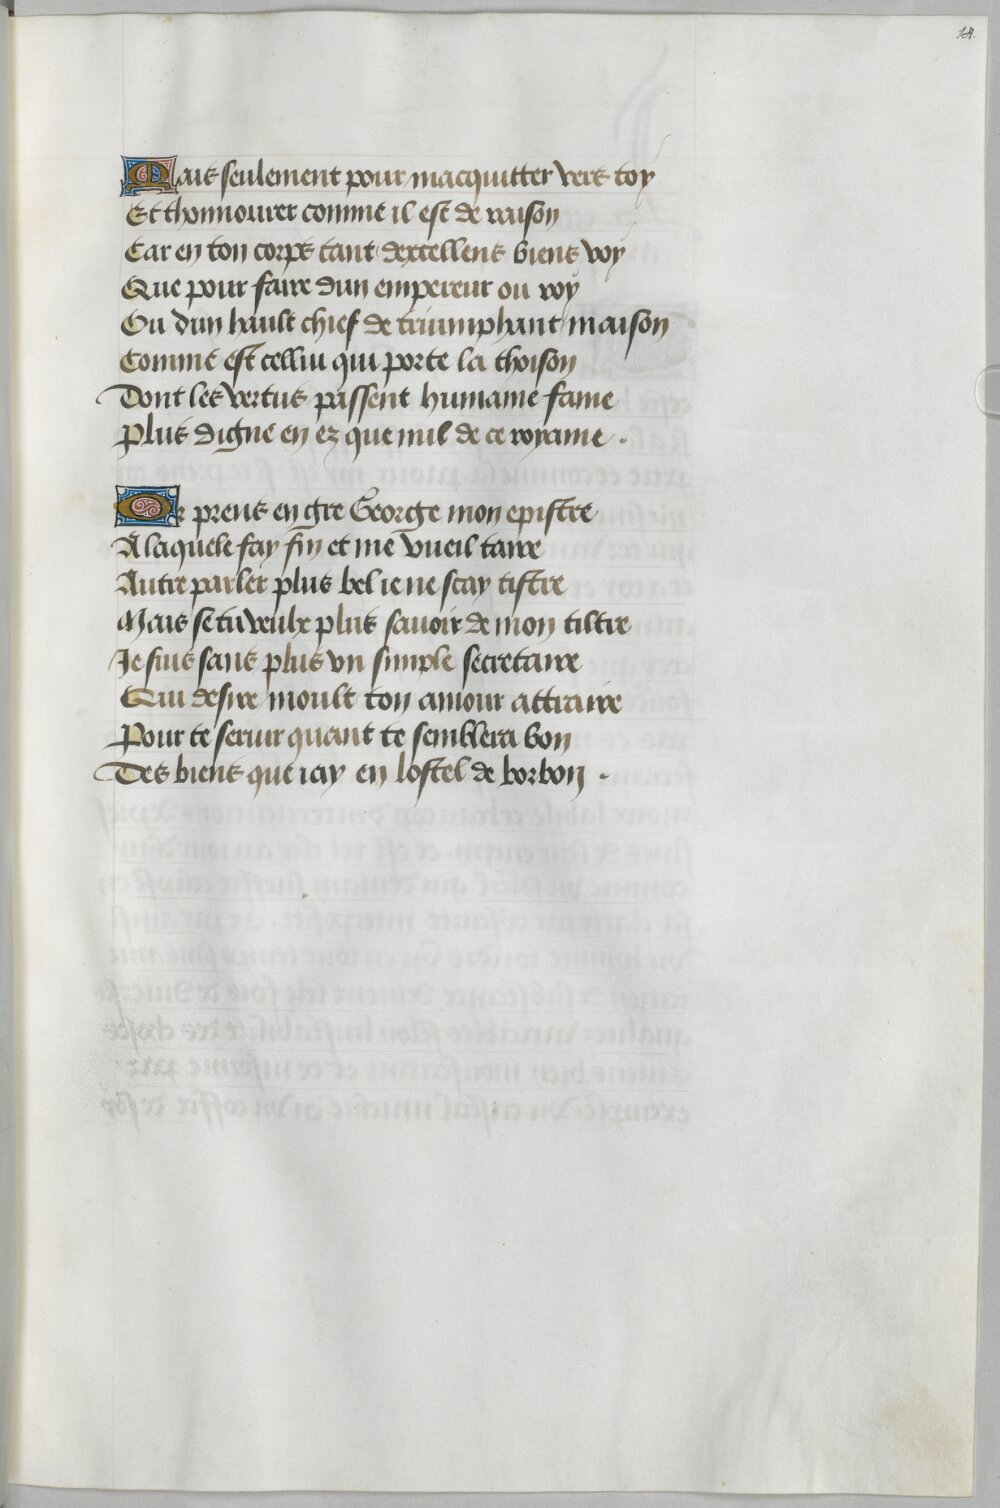 14.
Mais seulement pour macquitter vers toy
Et thonnourer comme il est de raison
Car en ton corps tant dexcellens biens voy
Que pour faire dun empereur ou roy
Ou dun hault chief de triumphant maison
Comme est celluy qui porte la thoison
Dont les vertus passent humaine fame
Plus digne en ez que nul de ce royame .
Or prens en gre George mon epistre
A laquele fay fin et me vueil taire
Autre parler plus bel ie ne scay tistre
Mais se tu veulx plus savoir de mon tiltre
Je suis sans plus vn simple secretaire
Qui desire moult ton amour attraire
Pour te seruir quant te semblera bon
Des biens que iay en lostel de borbon .